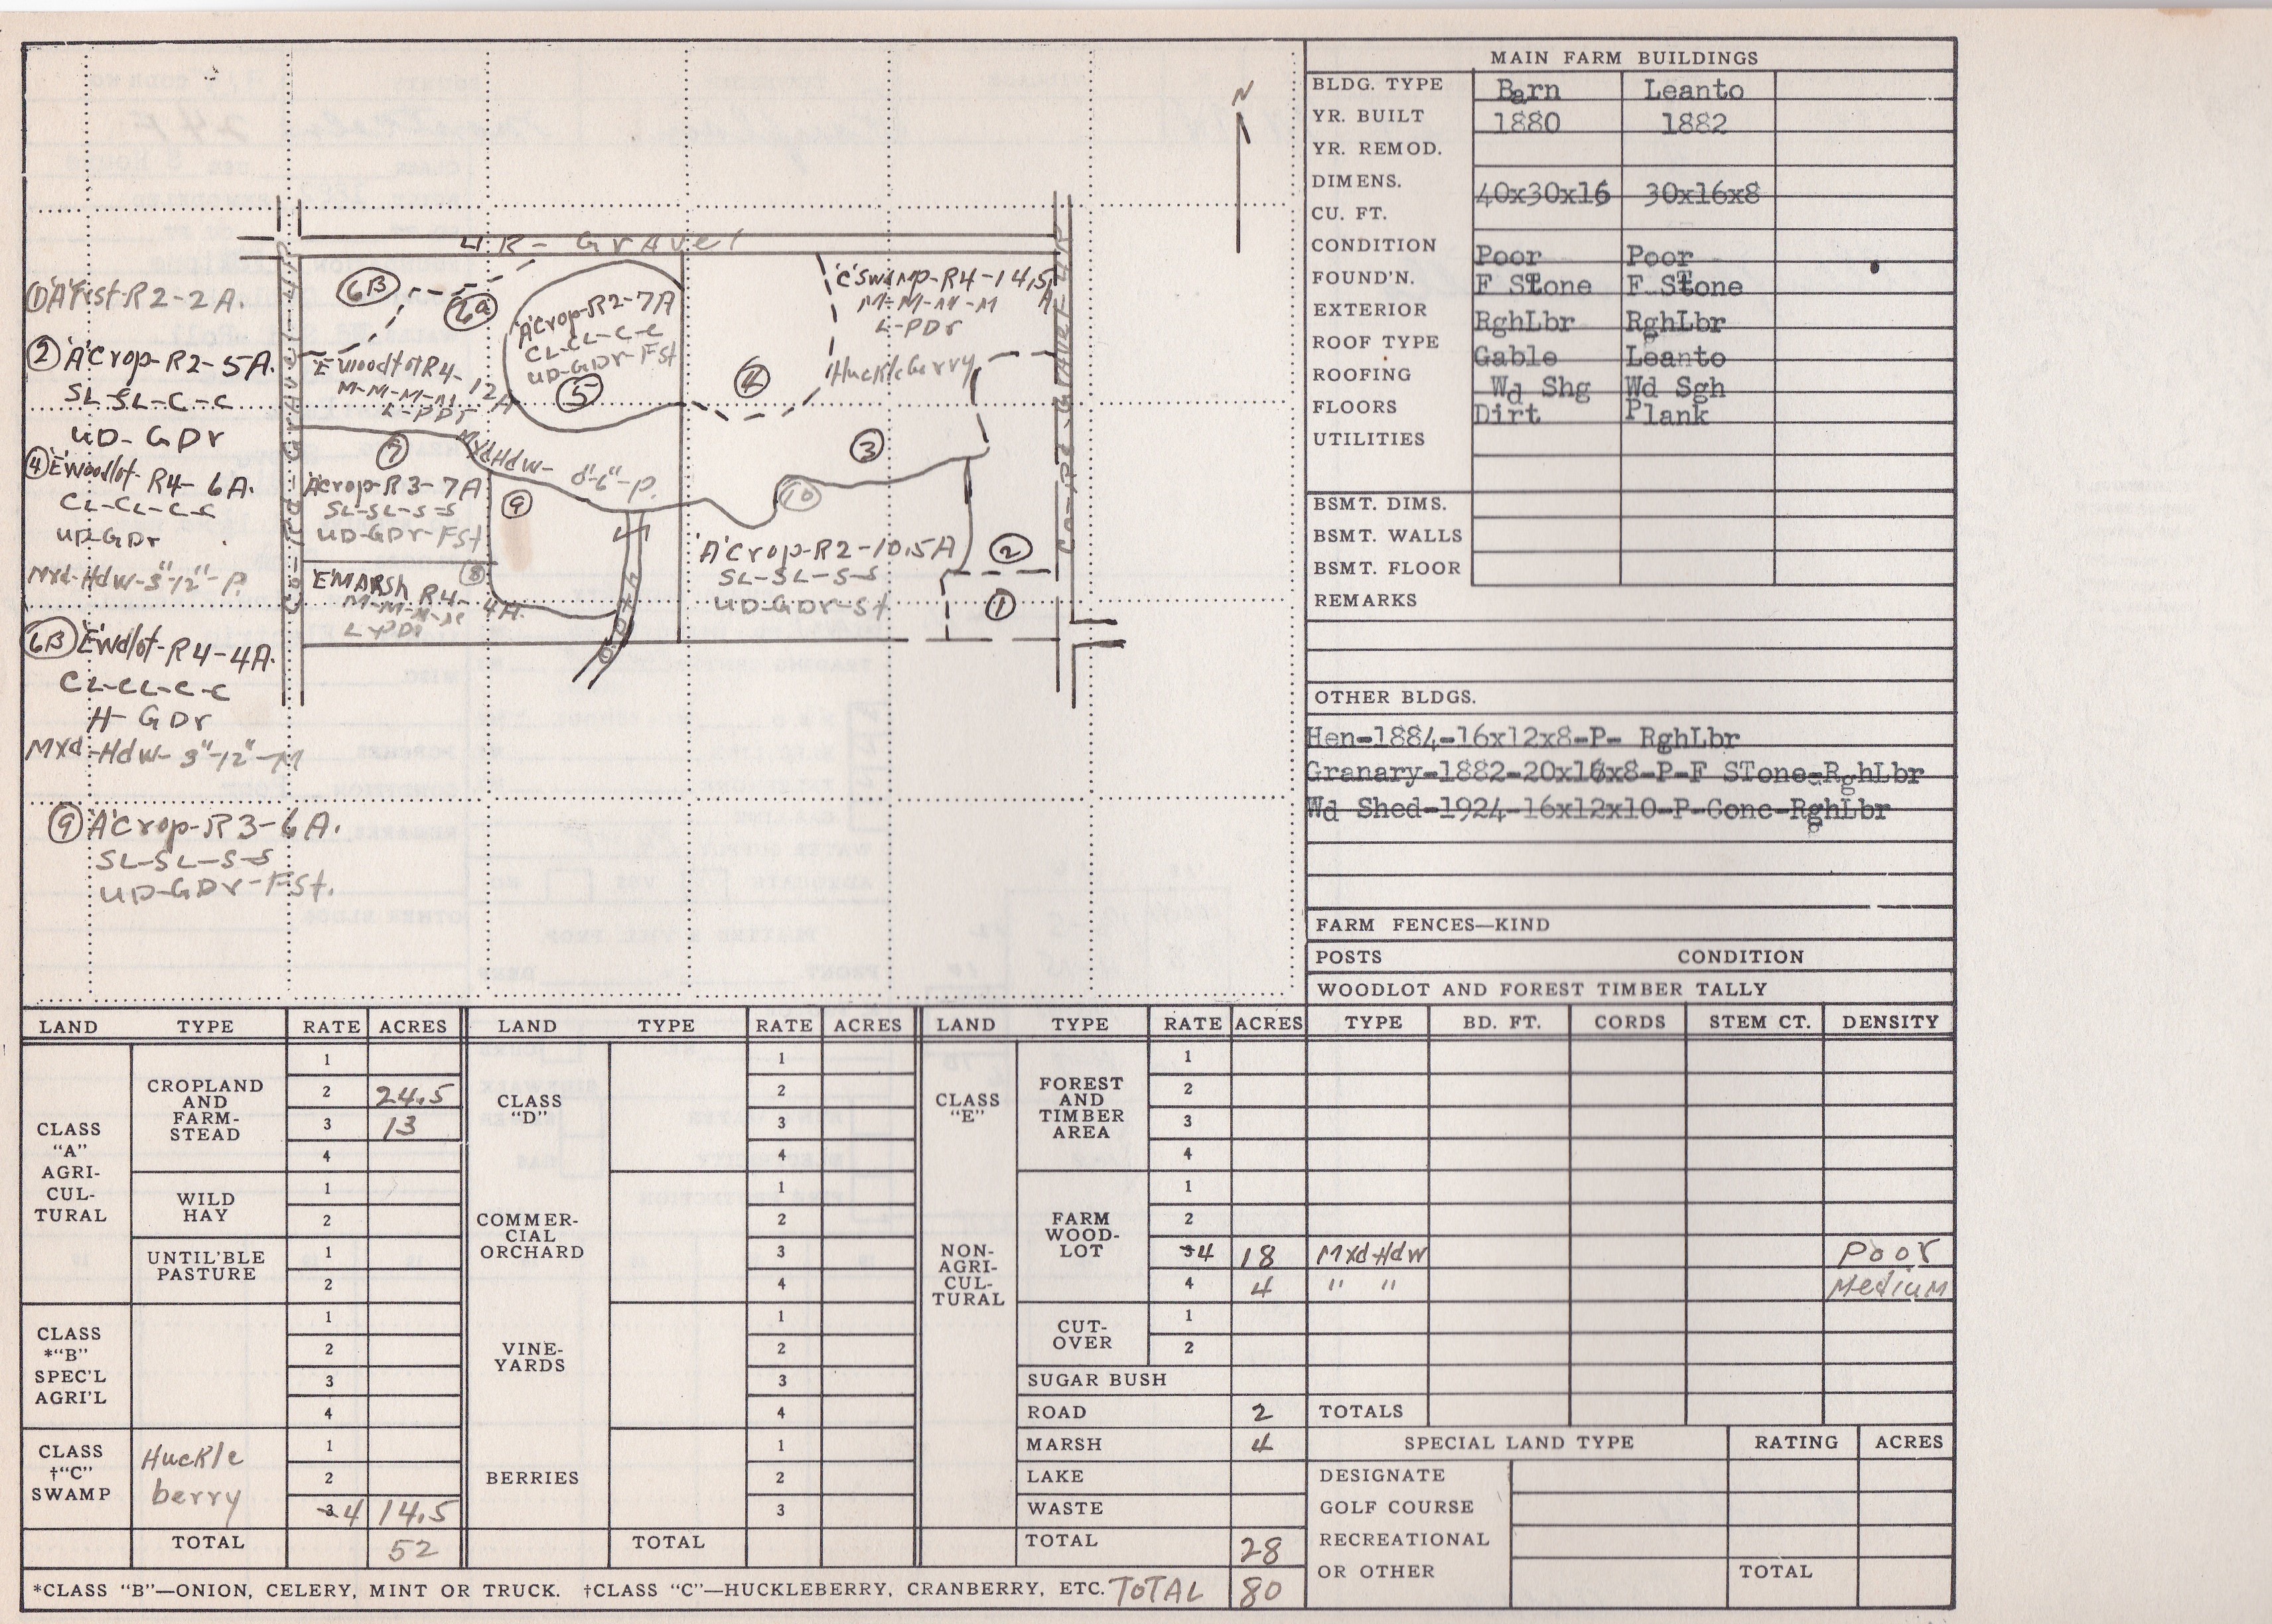 N
4R - Gravel
Co-Rd-Gravel-4R
Co-Rd-Gravel-4R
①'A'Frst-R2-2A.
②'A'Crop-R2-5A.
SL-SL-C-C
UD-GDr
④'E'Woodlot-R4-6A.
CL-CL-C-C
UD-GDr
Mxd-Hdw-3"-12"-P.
6B 'E'Wdlot-R4-4A.
CL-CL-C-C
H-GDr
Mxd-Hdw-3"-12"-M
⑨'A'Crop-R3-6A.
SL-SL-S-S
UD-GDr-FSt.
6B
6a
'E'WoodlotR4-12A
M-M-M-M
L-PDr
MxdHdw- 0"-6"-P.
'A'Crop-R2-7A
CL-CL-C-C
UD-GDr-FSt
⑤
④
'C'Swamp-R4-14.5A
M-M-M-M
L-PDr
Huckleberry
③
⑦
'A'Crop-R3-7A
SL-SL-S-S
UD-GDr-FSt
⑨
⑩
'A'Crop-R2-10.5A
SL-SL-S-S
UD-GDr-St.
②
①
'E'MARSH R4-4A.
⑧
M-M-M-M
L-PDr
MAIN FARM BUILDINGS
BLDG. TYPE Barn Leanto
YR. BUILT 1880 1882
YR. REMOD.
DIMENS. 40x30x16 30x16x8
CU. FT.
CONDITION Poor Poor
FOUND'N. F STone F STone
EXTERIOR RghLbr RghLbr
ROOF TYPE Gable Leanto
ROOFING Wd Shg Wd Sgh
FLOORS Dirt Plank
UTILITIES
BSMT. DIMS.
BSMT. WALLS
BSMT. FLOOR
REMARKS
OTHER BLDGS.
Hen-1884-16x12x8-P- RghLbr
Granary-1882-20x16x8-P-F STone-RghLbr
Wd Shed-1924-16x12x10-P-Conc-RghLbr
FARM FENCES—KIND
POSTS CONDITION
WOODLOT AND FOREST TIMBER TALLY
LAND TYPE RATE ACRES LAND TYPE RATE ACRES LAND TYPE RATE ACRES TYPE BD. FT. CORDS STEM CT. DENSITY
CLASS "A" AGRI-CUL-TURAL
CROPLAND AND FARM-STEAD
1
2 24.5
3 13
4
WILD HAY
1
2
UNTIL'BLE PASTURE
1
2
CLASS *"B" SPEC'L AGRI'L
1
2
3
4
CLASS †"C" SWAMP
Huckle berry
1
2
3 4 14.5
TOTAL 52
CLASS "D"
COMMER-CIAL ORCHARD
1
2
3
4
1
2
3
4
VINE-YARDS
1
2
3
4
BERRIES
1
2
3
TOTAL
CLASS "E"
NON-AGRI-CUL-TURAL
FOREST AND TIMBER AREA
1
2
3
4
FARM WOOD-LOT
1
2
3 4 18 Mxd-Hdw Poor
4 4 " " Medium
CUT-OVER
1
2
SUGAR BUSH
ROAD 2 TOTALS
MARSH 4
LAKE
WASTE
TOTAL 28
SPECIAL LAND TYPE RATING ACRES
DESIGNATE
GOLF COURSE
RECREATIONAL
OR OTHER TOTAL
*CLASS "B"—ONION, CELERY, MINT OR TRUCK. †CLASS "C"—HUCKLEBERRY, CRANBERRY, ETC. TOTAL 80